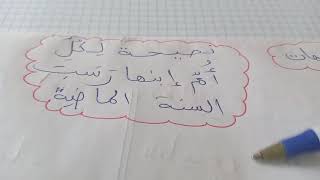 نصيحة لكلّ
أمّ إبنها رسب
السنة الماضية